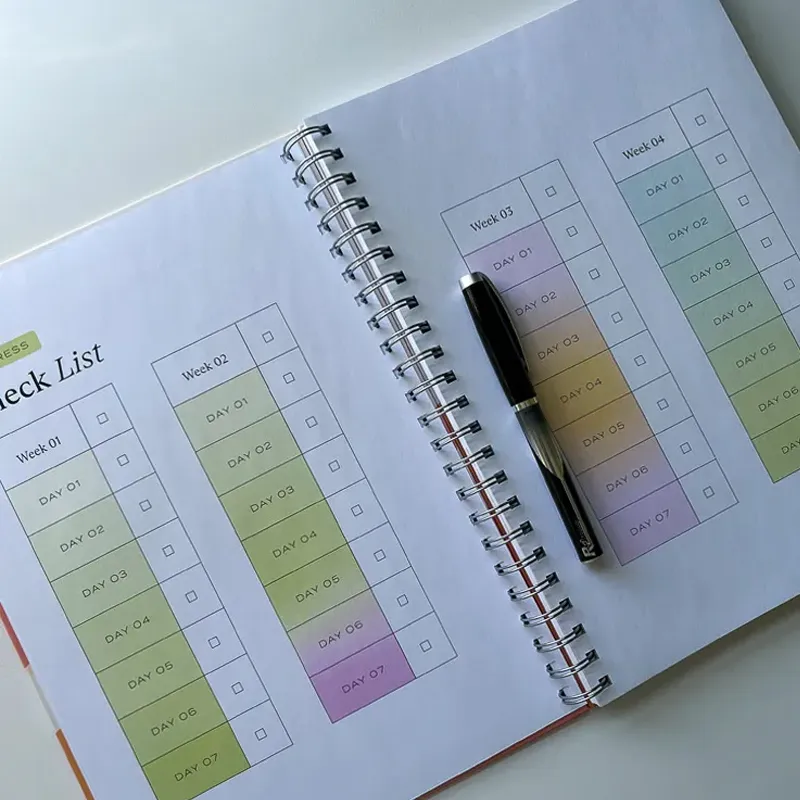 RESS
eck List
Week 01
DAY 01
DAY 02
DAY 03
DAY 04
DAY 05
DAY 06
DAY 07
Week 02
DAY 01
DAY 02
DAY 03
DAY 04
DAY 05
DAY 06
DAY 07
Week 03
DAY 01
DAY 02
DAY 03
DAY 04
DAY 05
DAY 06
DAY 07
Week 04
DAY 01
DAY 02
DAY 03
DAY 04
DAY 05
DAY 06
DAY